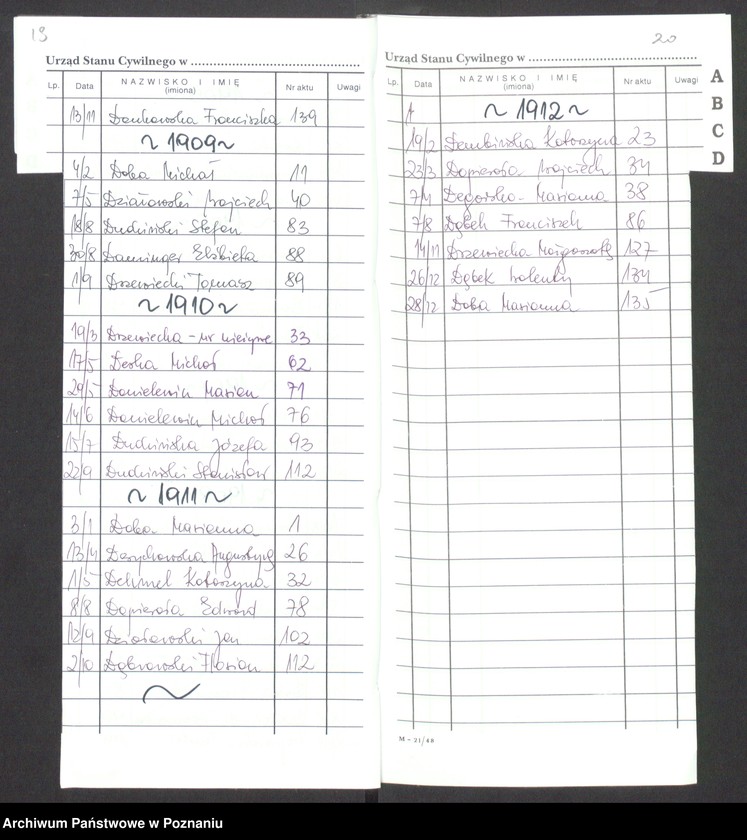 19
Urząd Stanu Cywilnego w
Lp. Data NAZWISKO I IMIĘ (imiona) Nr aktu Uwagi
13/11 Dankowska Franciszka 139
~ 1909 ~
4/2 Doba Michał 11
7/5 Działowski Wojciech 40
18/8 Dudziński Stefan 83
30/8 Danninger Elżbieta 88
1/9 Drzewiecki Tomasz 89
~ 1910 ~
19/3 Drzewiecka - nr nieżywe 33
17/5 Derba Michał 62
29/5 Danielewicz Marian 71
14/6 Danielewicz Michał 76
15/7 Dudzińska Józefa 93
22/9 Dudziński Stanisław 112
~ 1911 ~
3/1 Doba Marianna 1
13/4 Augustyna 26
1/5 Dehmel Katarzyna 32
8/8 Dopierała Edward 78
12/9 Działowski Jan 102
2/10 Dąbrowski Florian 112
~
20
Urząd Stanu Cywilnego w
Lp. Data NAZWISKO I IMIĘ (imiona) Nr aktu Uwagi
~ 1912 ~
19/2 Dembińska Katarzyna 23
23/3 Dopierała Wojciech 34
7/4 Degórska Marianna 38
7/8 Dąbek Franciszek 86
14/11 Drzewiecka Małgorzata 127
26/12 Dąbek Walenty 134
28/12 Doba Marianna 135
M - 21/48
A
B
C
D
Archiwum Państwowe w Poznaniu